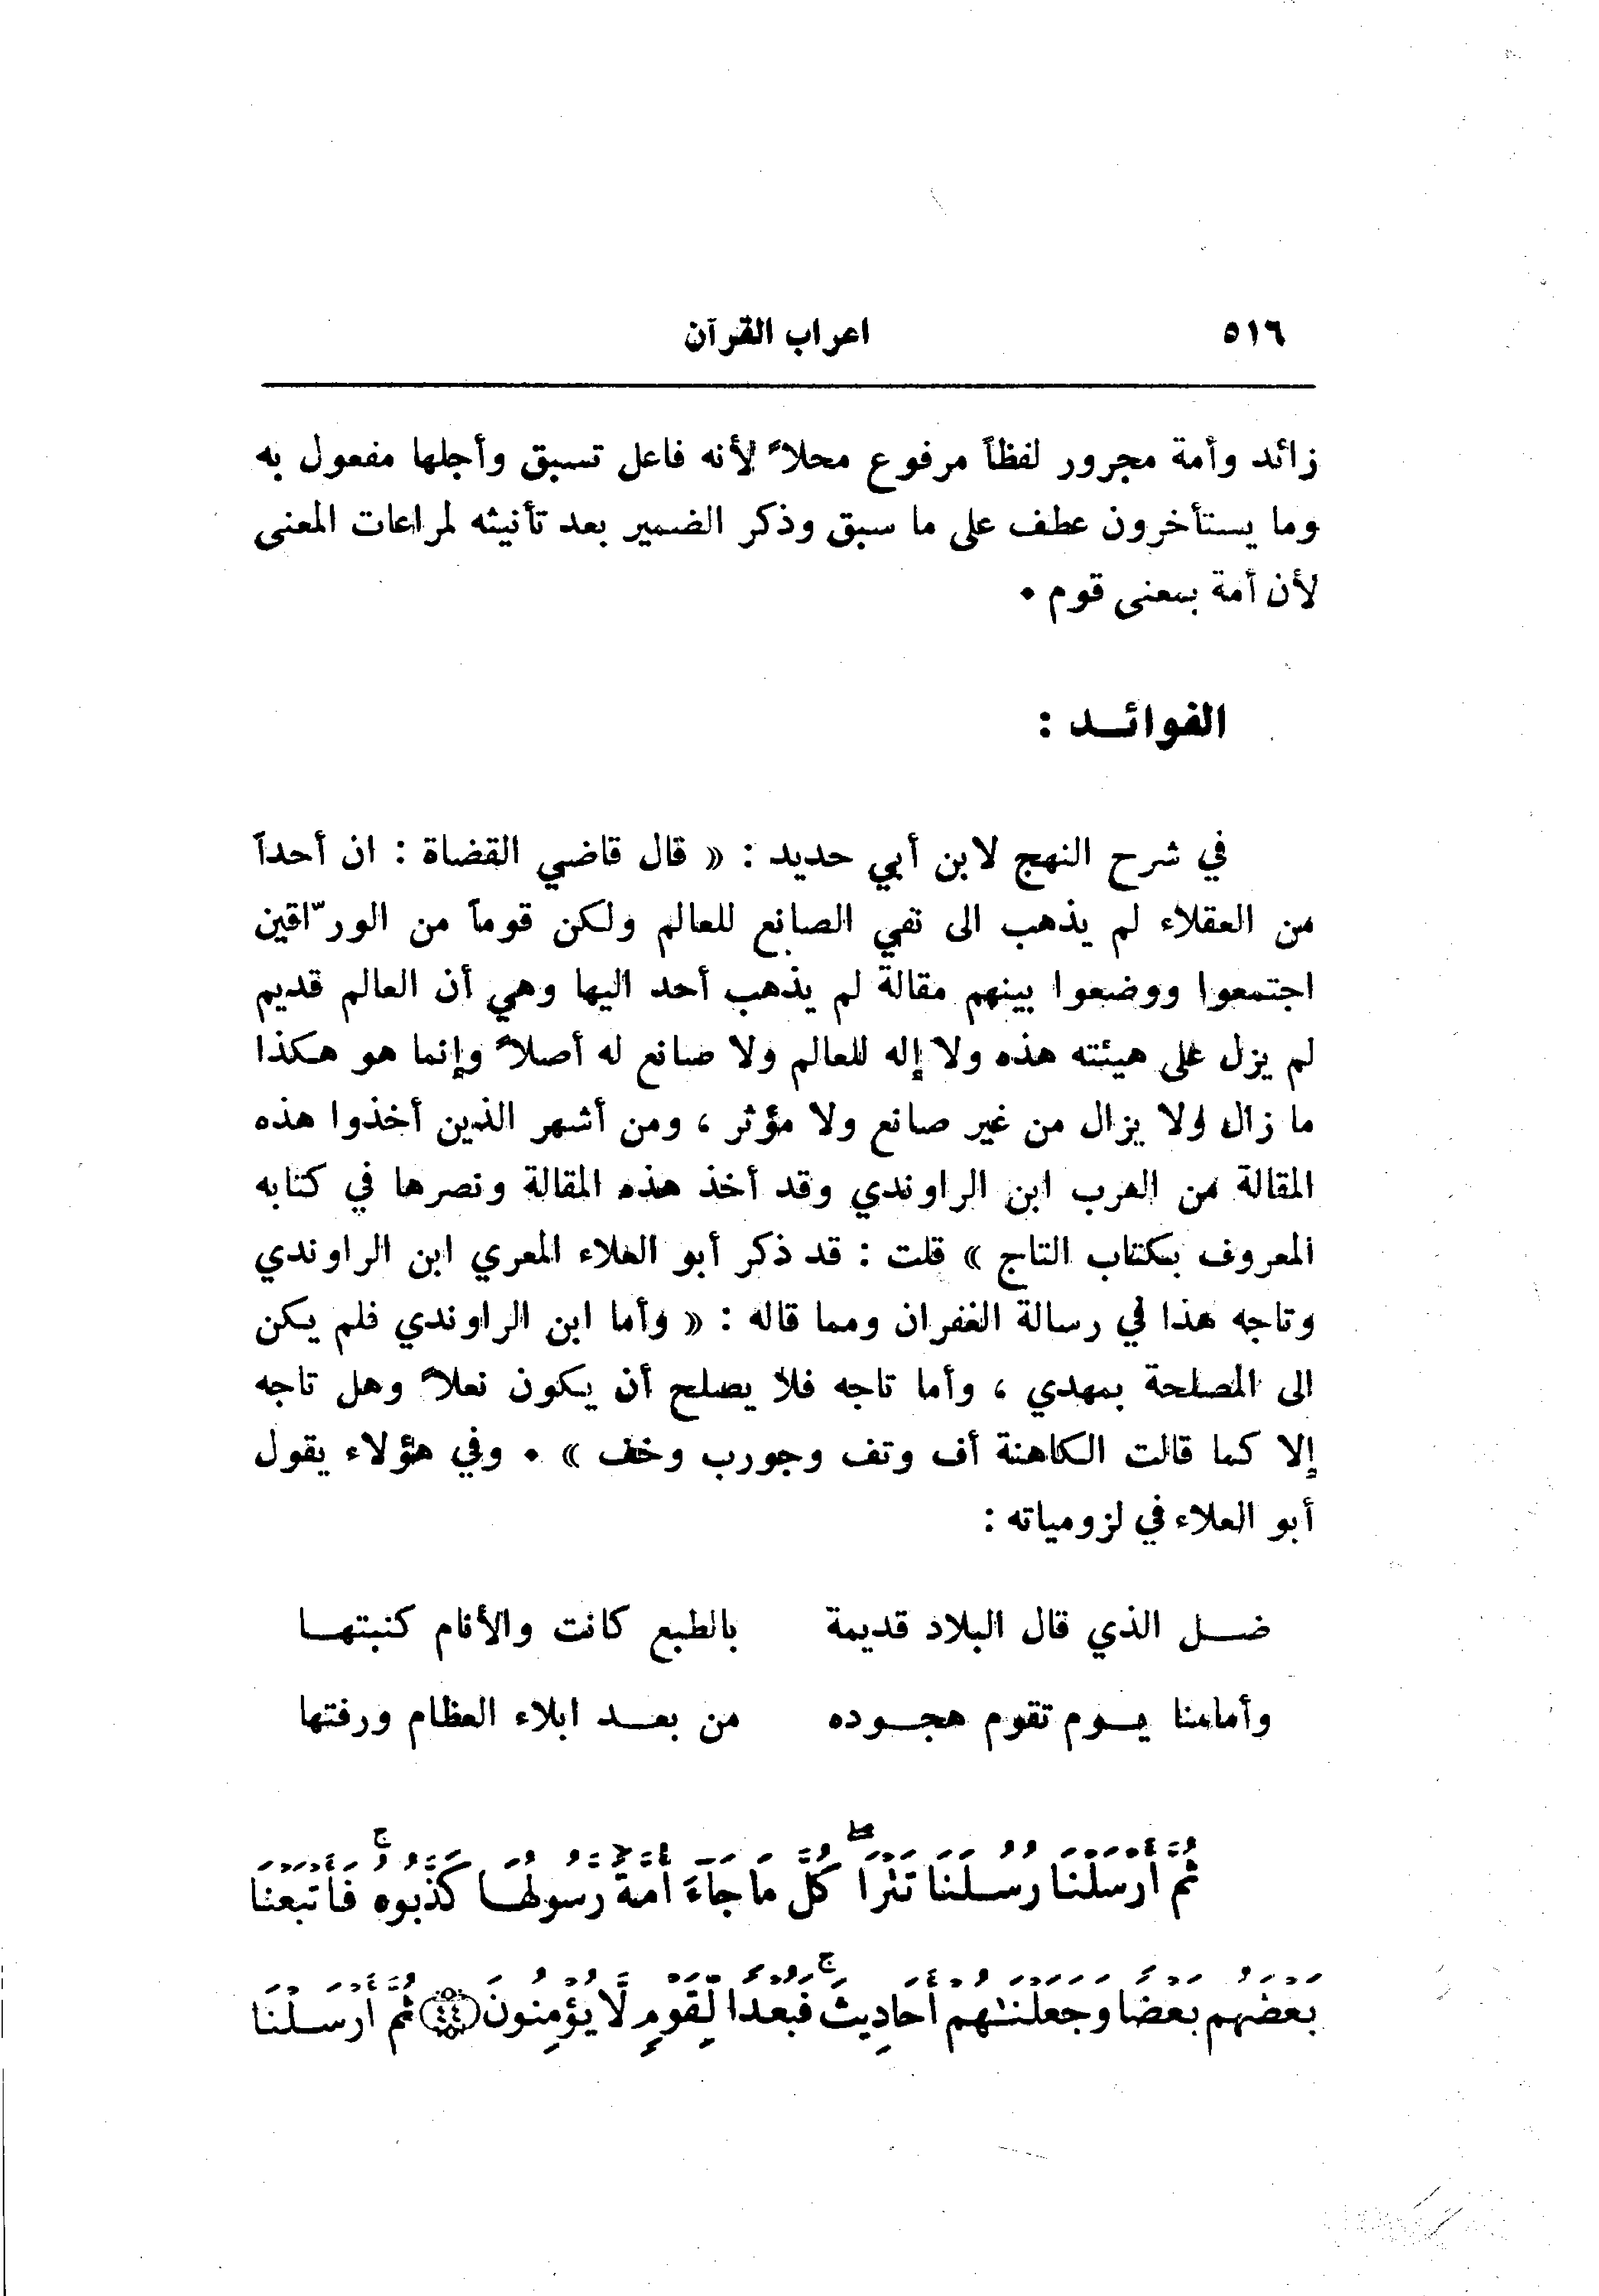 ٥١٦ اعراب القرآن
زائد وأمة مجرور لفظاً مرفوع محلاً لأنه فاعل تسبق وأجلها مفعول به
وما يستأخرون عطف على ما سبق وذكر الضمير بعد تأنيثه لمراعات المعنى
لأن أمة بمعنى قوم ٠
الفوائـد :
في شرح النهج لابن أبي حديد : « قال قاضي القضاة : ان أحداً
من العقلاء لم يذهب الى نفي الصانع للعالم ولكن قوماً من الورّاقين
اجتمعوا ووضعوا بينهم مقالة لم يذهب أحد اليها وهي أن العالم قديم
لم يزل على هيئته هذه ولا إله للعالم ولا صانع له أصلاً وإنما هو هكذا
ما زال ولا يزال من غير صانع ولا مؤثر ، ومن أشهر الذين أخذوا هذه
المقالة من العرب ابن الراوندي وقد أخذ هذه المقالة ونصرها في كتابه
المعروف بكتاب التاج » قلت : قد ذكر أبو العلاء المعري ابن الراوندي
وتاجه هذا في رسالة الغفران ومما قاله : « وأما ابن الراوندي فلم يكن
الى المصلحة بمهدي ، وأما تاجه فلا يصلح أن يكون نعلاً وهل تاجه
إلا كما قالت الكاهنة أف وتف وجورب وخف » ٠ وفي هؤلاء يقول
أبو العلاء في لزومياته :
ضـل الذي قال البلاد قديمة بالطبع كانت والأنام كنبتهـا
وأمامنا يـوم تقوم هجـوده من بعـد ابلاء العظام ورفتها
ثُمَّ أَرْسَلْنَا رُسُلَنَا تَتْرَا ۖ كُلَّ مَا جَآءَ أُمَّةً رَّسُولُهَا كَذَّبُوهُ ۚ فَأَتْبَعْنَا
بَعْضَهُم بَعْضًا وَجَعَلْنَٰهُمْ أَحَادِيثَ ۚ فَبُعْدًا لِّقَوْمٍ لَّا يُؤْمِنُونَ ﴿٤٤﴾ ثُمَّ أَرْسَلْنَا